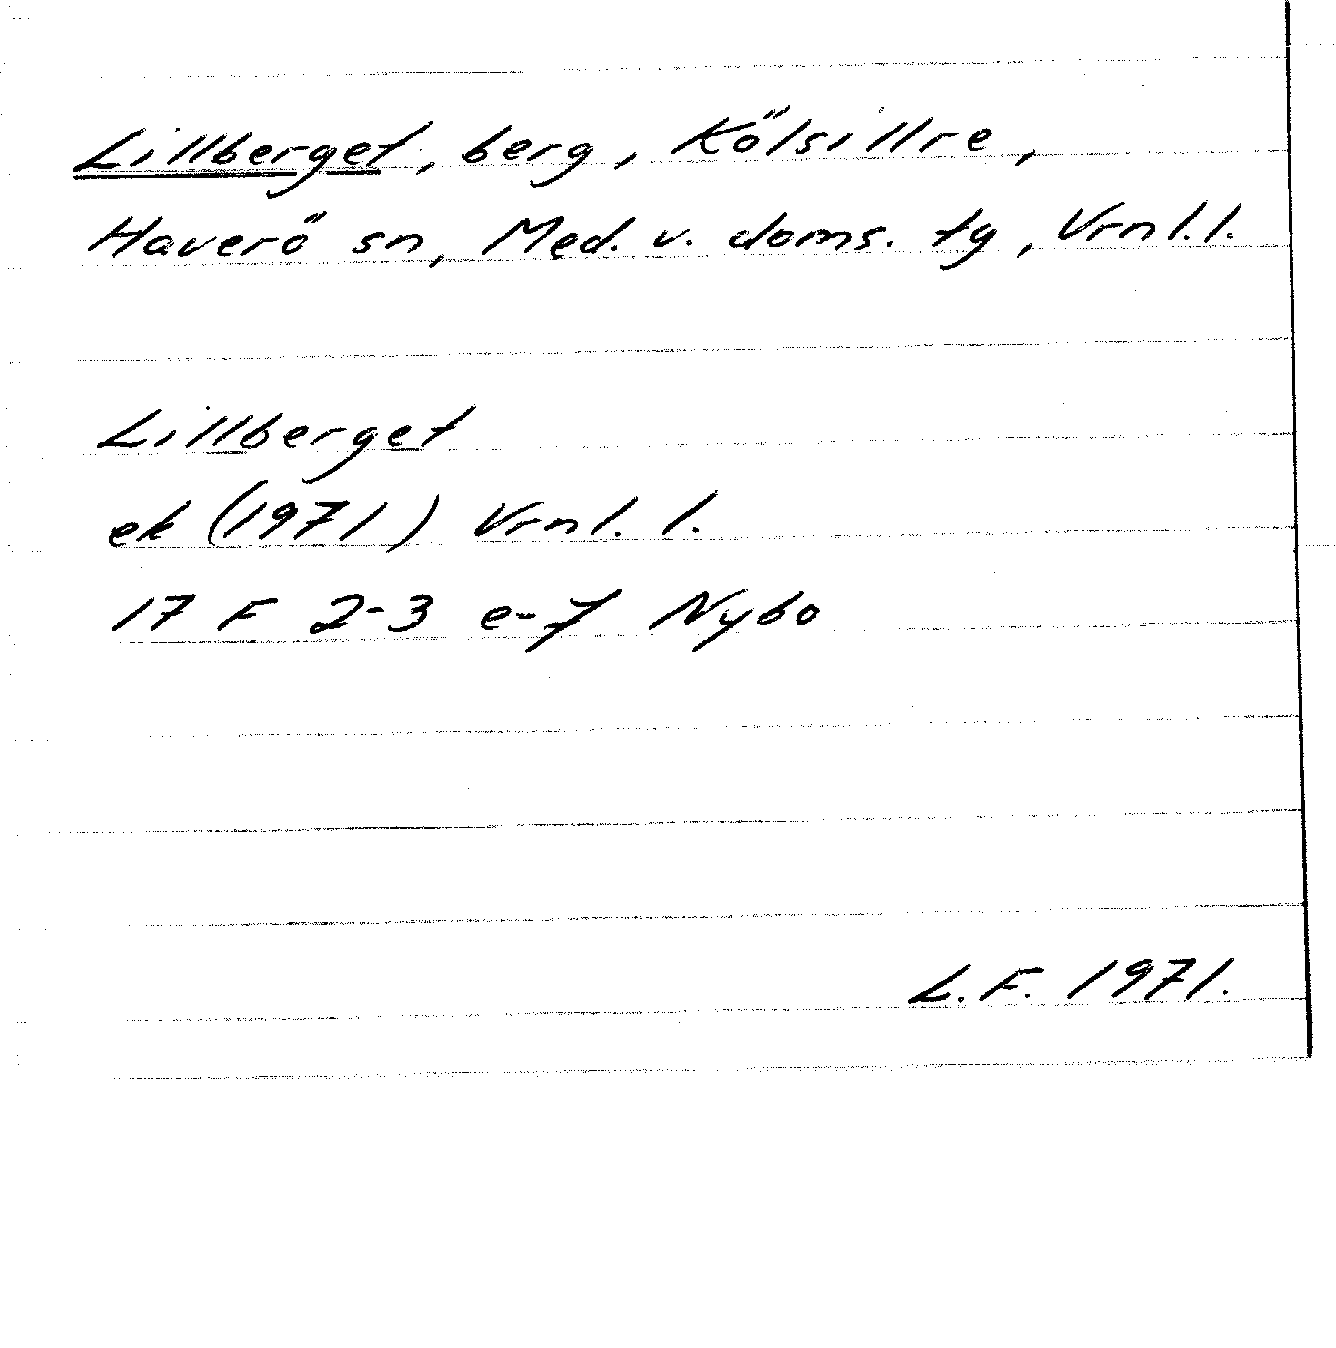 Lillberget, berg, Kölsillre,
Haverö sn, Med. v. doms. tg, Vrnl. l.
Lillberget
ek (1971) Vrnl. l.
17 F 2-3 e-f Nybo
L.F. 1971.